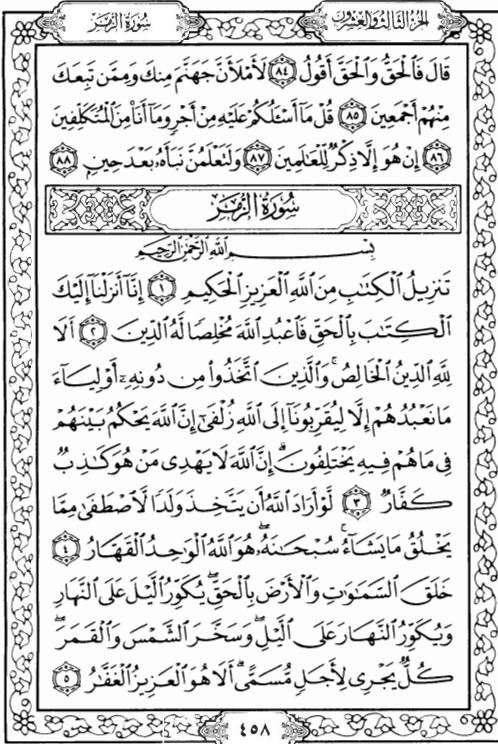 سُورَةُ الزُّمَرِ
الجُزءُ الثَّالِثُ وَالعِشْرُونَ
قَالَ فَالْحَقُّ وَالْحَقَّ أَقُولُ ٨٤ لَأَمْلَأَنَّ جَهَنَّمَ مِنكَ وَمِمَّن تَبِعَكَ
مِنْهُمْ أَجْمَعِينَ ٨٥ قُلْ مَآ أَسْـَٔلُكُمْ عَلَيْهِ مِنْ أَجْرٍ وَمَآ أَنَا۠ مِنَ الْمُتَكَلِّفِينَ
٨٦ إِنْ هُوَ إِلَّا ذِكْرٌ لِّلْعَالَمِينَ ٨٧ وَلَتَعْلَمُنَّ نَبَأَهُۥ بَعْدَ حِينٍۭ ٨٨
سُورَةُ الزُّمَرِ
بِسْمِ اللَّهِ الرَّحْمَٰنِ الرَّحِيمِ
تَنزِيلُ الْكِتَٰبِ مِنَ اللَّهِ الْعَزِيزِ الْحَكِيمِ ١ إِنَّآ أَنزَلْنَآ إِلَيْكَ
الْكِتَٰبَ بِالْحَقِّ فَاعْبُدِ اللَّهَ مُخْلِصًا لَّهُ الدِّينَ ٢ أَلَا
لِلَّهِ الدِّينُ الْخَالِصُ ۚ وَالَّذِينَ اتَّخَذُوا۟ مِن دُونِهِۦٓ أَوْلِيَآءَ
مَا نَعْبُدُهُمْ إِلَّا لِيُقَرِّبُونَآ إِلَى اللَّهِ زُلْفَىٰٓ إِنَّ اللَّهَ يَحْكُمُ بَيْنَهُمْ
فِى مَا هُمْ فِيهِ يَخْتَلِفُونَ ۗ إِنَّ اللَّهَ لَا يَهْدِى مَنْ هُوَ كَٰذِبٌ
كَفَّارٌ ٣ لَّوْ أَرَادَ اللَّهُ أَن يَتَّخِذَ وَلَدًا لَّاصْطَفَىٰ مِمَّا
يَخْلُقُ مَا يَشَآءُ ۚ سُبْحَٰنَهُۥ ۖ هُوَ اللَّهُ الْوَٰحِدُ الْقَهَّارُ ٤
خَلَقَ السَّمَٰوَٰتِ وَالْأَرْضَ بِالْحَقِّ ۖ يُكَوِّرُ الَّيْلَ عَلَى النَّهَارِ
وَيُكَوِّرُ النَّهَارَ عَلَى الَّيْلِ ۖ وَسَخَّرَ الشَّمْسَ وَالْقَمَرَ ۖ
كُلٌّ يَجْرِى لِأَجَلٍ مُّسَمًّى ۗ أَلَا هُوَ الْعَزِيزُ الْغَفَّٰرُ ٥
٤٥٨